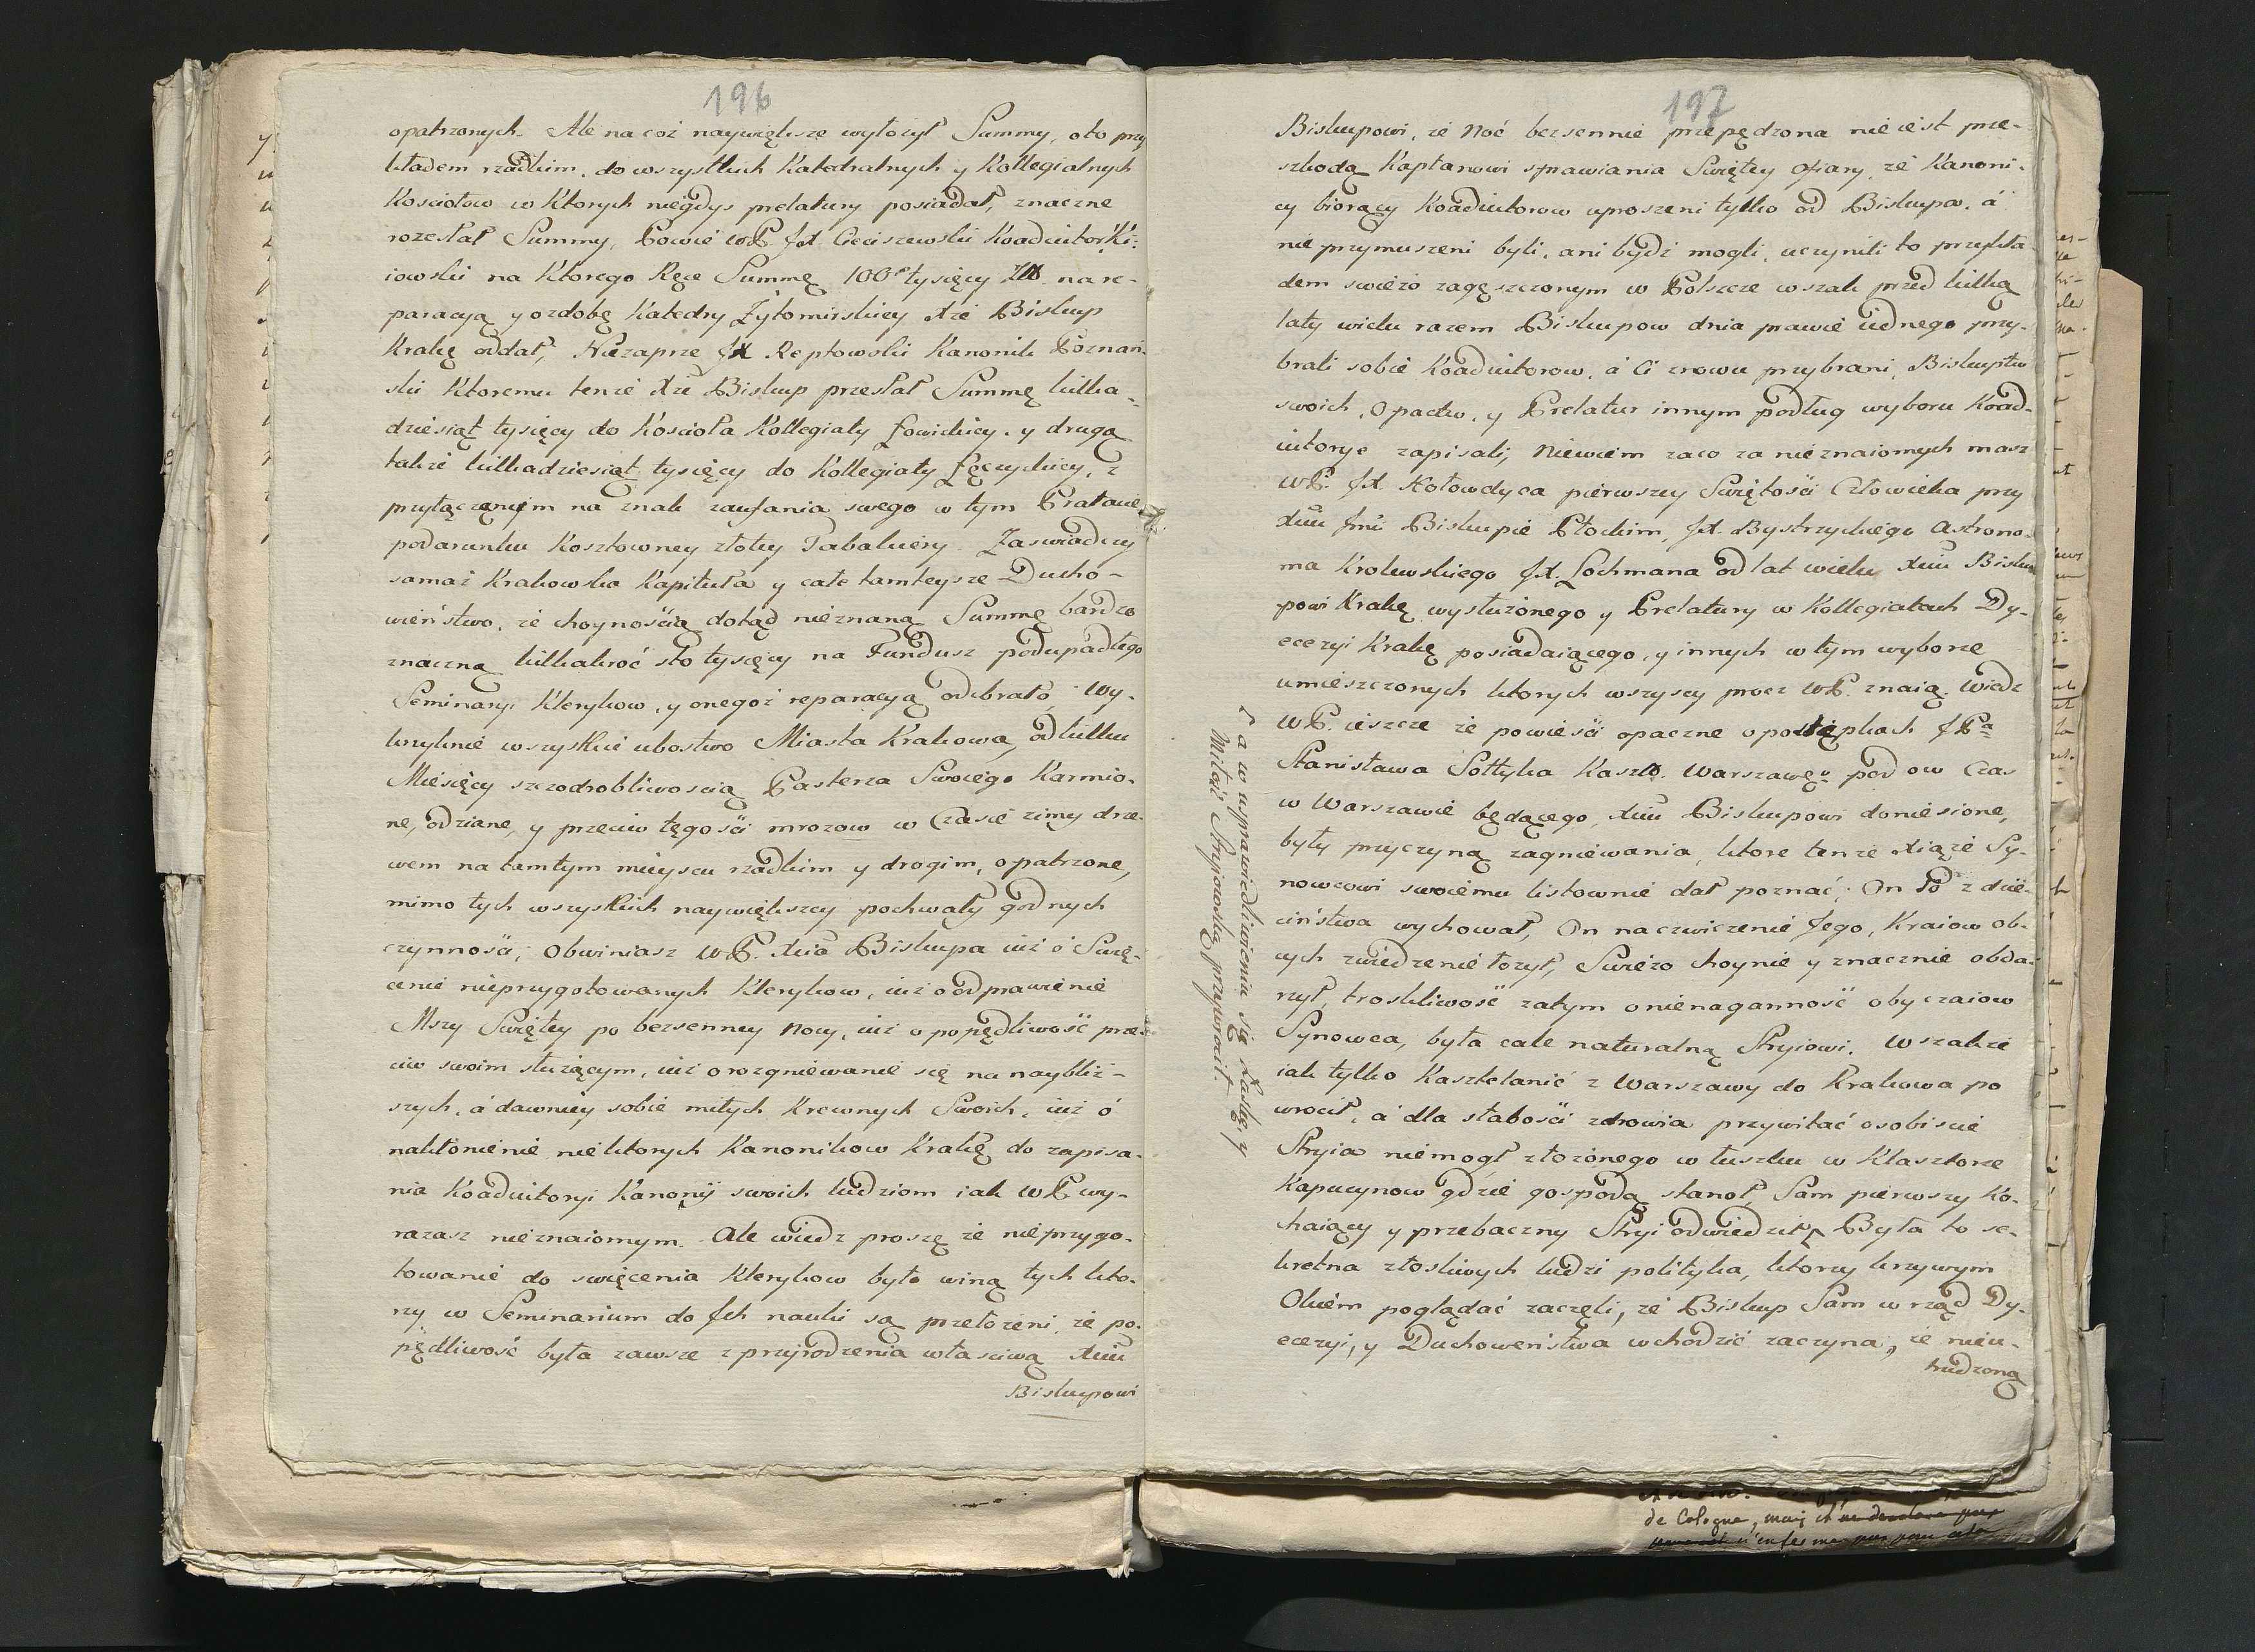 196
opatrzonych. Ale na coż naywięksże wyłożył Summy, oto przy
kładem rzadkim, do wszystkich Katedralnych y Kollegialnych
Kosciołow w Ktorych niegdys prelatury posiadał, znaczne
rozesłał Summy, Powie WP. JX. Cieciszewski Koadiutor Ki-
iowski na Ktorego Ręce Summę 100 tysięcy Złł. na re-
paracyą y ozdobę Katedry Zytomirskiey Xże Biskup
Krakę oddał, Niezaprze JX Reptowski Kanonik Poznań-
ski Ktoremu tenże Xże Biskup przesłał Summę kilka-
dziesiąt tysięcy do Koscioła Kollegiaty Łowickiey. y drugą
także kilkadziesiąt tysięcy do Kollegiaty Łęczyckiey, z
przyłączeniem na znak zaufania swego w tym Prałacie
podarunku Kosztowney złotey Tabakiery. Zaswiadczy
samaż Krakowska Kapituła y całe tamteysze Ducho-
wieństwo, że choynością dotąd nieznaną Summę bardzo
znaczną kilkakroć sto tysięcy na Fundusz podupadłego
Seminaryi Klerykow, y onegoż reparacyą odebrało. Wy-
krzyknie wszystkie ubostwo Miasta Krakowa, od kilku
Miesięcy szczodrobliwoscią Pasterza Swoiego Karmio-
ne, odziane, y przeciw tęgości mrozow w Czasie zimy drze-
wem na tamtym mieyscu rzadkim y drogim, opatrzone,
mimo tych wszystkich naywiększey pochwały godnych
czynności; Obwiniasz WP. Xcia Biskupa iuż o Swię-
cenie nieprzygotowanych Klerykow, iuż o odprawienie
Mszy Swiętey po bezsenney Nocy, iuż o popędliwość prze-
ciw swoim służącym, iuż o rozgniewanie się na naybliż-
szych, á dawniey sobie miłych Krewnych Swoich, iuż ó
nakłonienie niektorych Kanonikow Krakę do zapisa-
nia Koadiutoryi Kanonij swoich ludziom iak WP wy-
rażasz nieznaiomym. Ale wiedz proszę że nieprzygo-
towanie do swięcenia Klerykow było winą tych kto-
rzy w Seminarium do Ich nauki są przełożeni, że po-
pędliwość była zawsze z przyrodzenia własciwą Xciu
Biskupowi
197
Biskupowi, że Noc bezsennie przepędzona nie iest prze-
szkodą Kapłanowi sprawiania Swiętey Ofiary, że Kanoni-
cy biorący Koadiutorow uproszeni tylko od Biskupa, á
nie przymuszeni byli, ani bydź mogli, uczynili to przykła-
dem swieżo zagęszczonym w Polszcze wszak przed kilką
laty wielu razem Biskupow dnia prawie iednego przy-
brali sobie Koadiutorow, á Ci znowu przybrani, Biskupstw
swoich, Opactw, y Prelatur innym podług wyboru Koad-
iutorye zapisali; Niewiem zaco za nieznaiomych masz
WP. JX. Kołowdyca pierwszey Swiętości Człowieka przy
Xciu Jmci Biskupie Płockim, JX. Bystrzyckiego Astrono-
ma Krolewskiego JX. Lochmana od lat wielu Xciu Bisku
powi Krakę wysłużonego y Prelatury w Kollegiatach Dy-
ecezyi Krakę posiadaiącego, y innych w tym wyborze
umieszczonych ktorych wszyscy procz WP. znaią. Wiedz
WP. ieszcze że powieści opaczne o postępkach JPa
Stanisława Sołtyka Kaszto. Warszawgo pod ow Czas
w Warszawie będącego, Xciu Biskupowi doniesione,
były przyczyną zagniewania, ktore tenże Xiąże Sy-
nowcowi swoiemu listownie dał poznać; On Go z dzie-
ciństwa wychował, On na czwiczenie Jego, Kraiow ob-
cych zwiedzenie łożył, Swieżo hoynie y znacznie obda-
rzył, troskliwość zatym o nienaganność obyczaiow
Synowca, była cale naturalną Stryiowi. Wszakże
iak tylko Kasztelanic z Warszawy do Krakowa po
wrocił, á dla słabości zdrowia przywitać osobiscie
Stryia niemogł złożonego w łuszku w Klasztorze
Kapucynow gdzie gospodą stanoł, Sam pierwszy Ko-
chaiący y przebaczny Stryi odwiedził, Była to se-
kretna złosliwych ludzi polityka, ktorzy krzywym
Okiem poglądać zaczęli, że Biskup Sam w rząd Dy-
ecezyi, y Duchowieństwa wchodzić zaczyna, że nieu-
trudzoną
a w usprawiedliwieniu się Łaskę, y
Miłość Stryiowską przywrocił.
de Cologne, mais